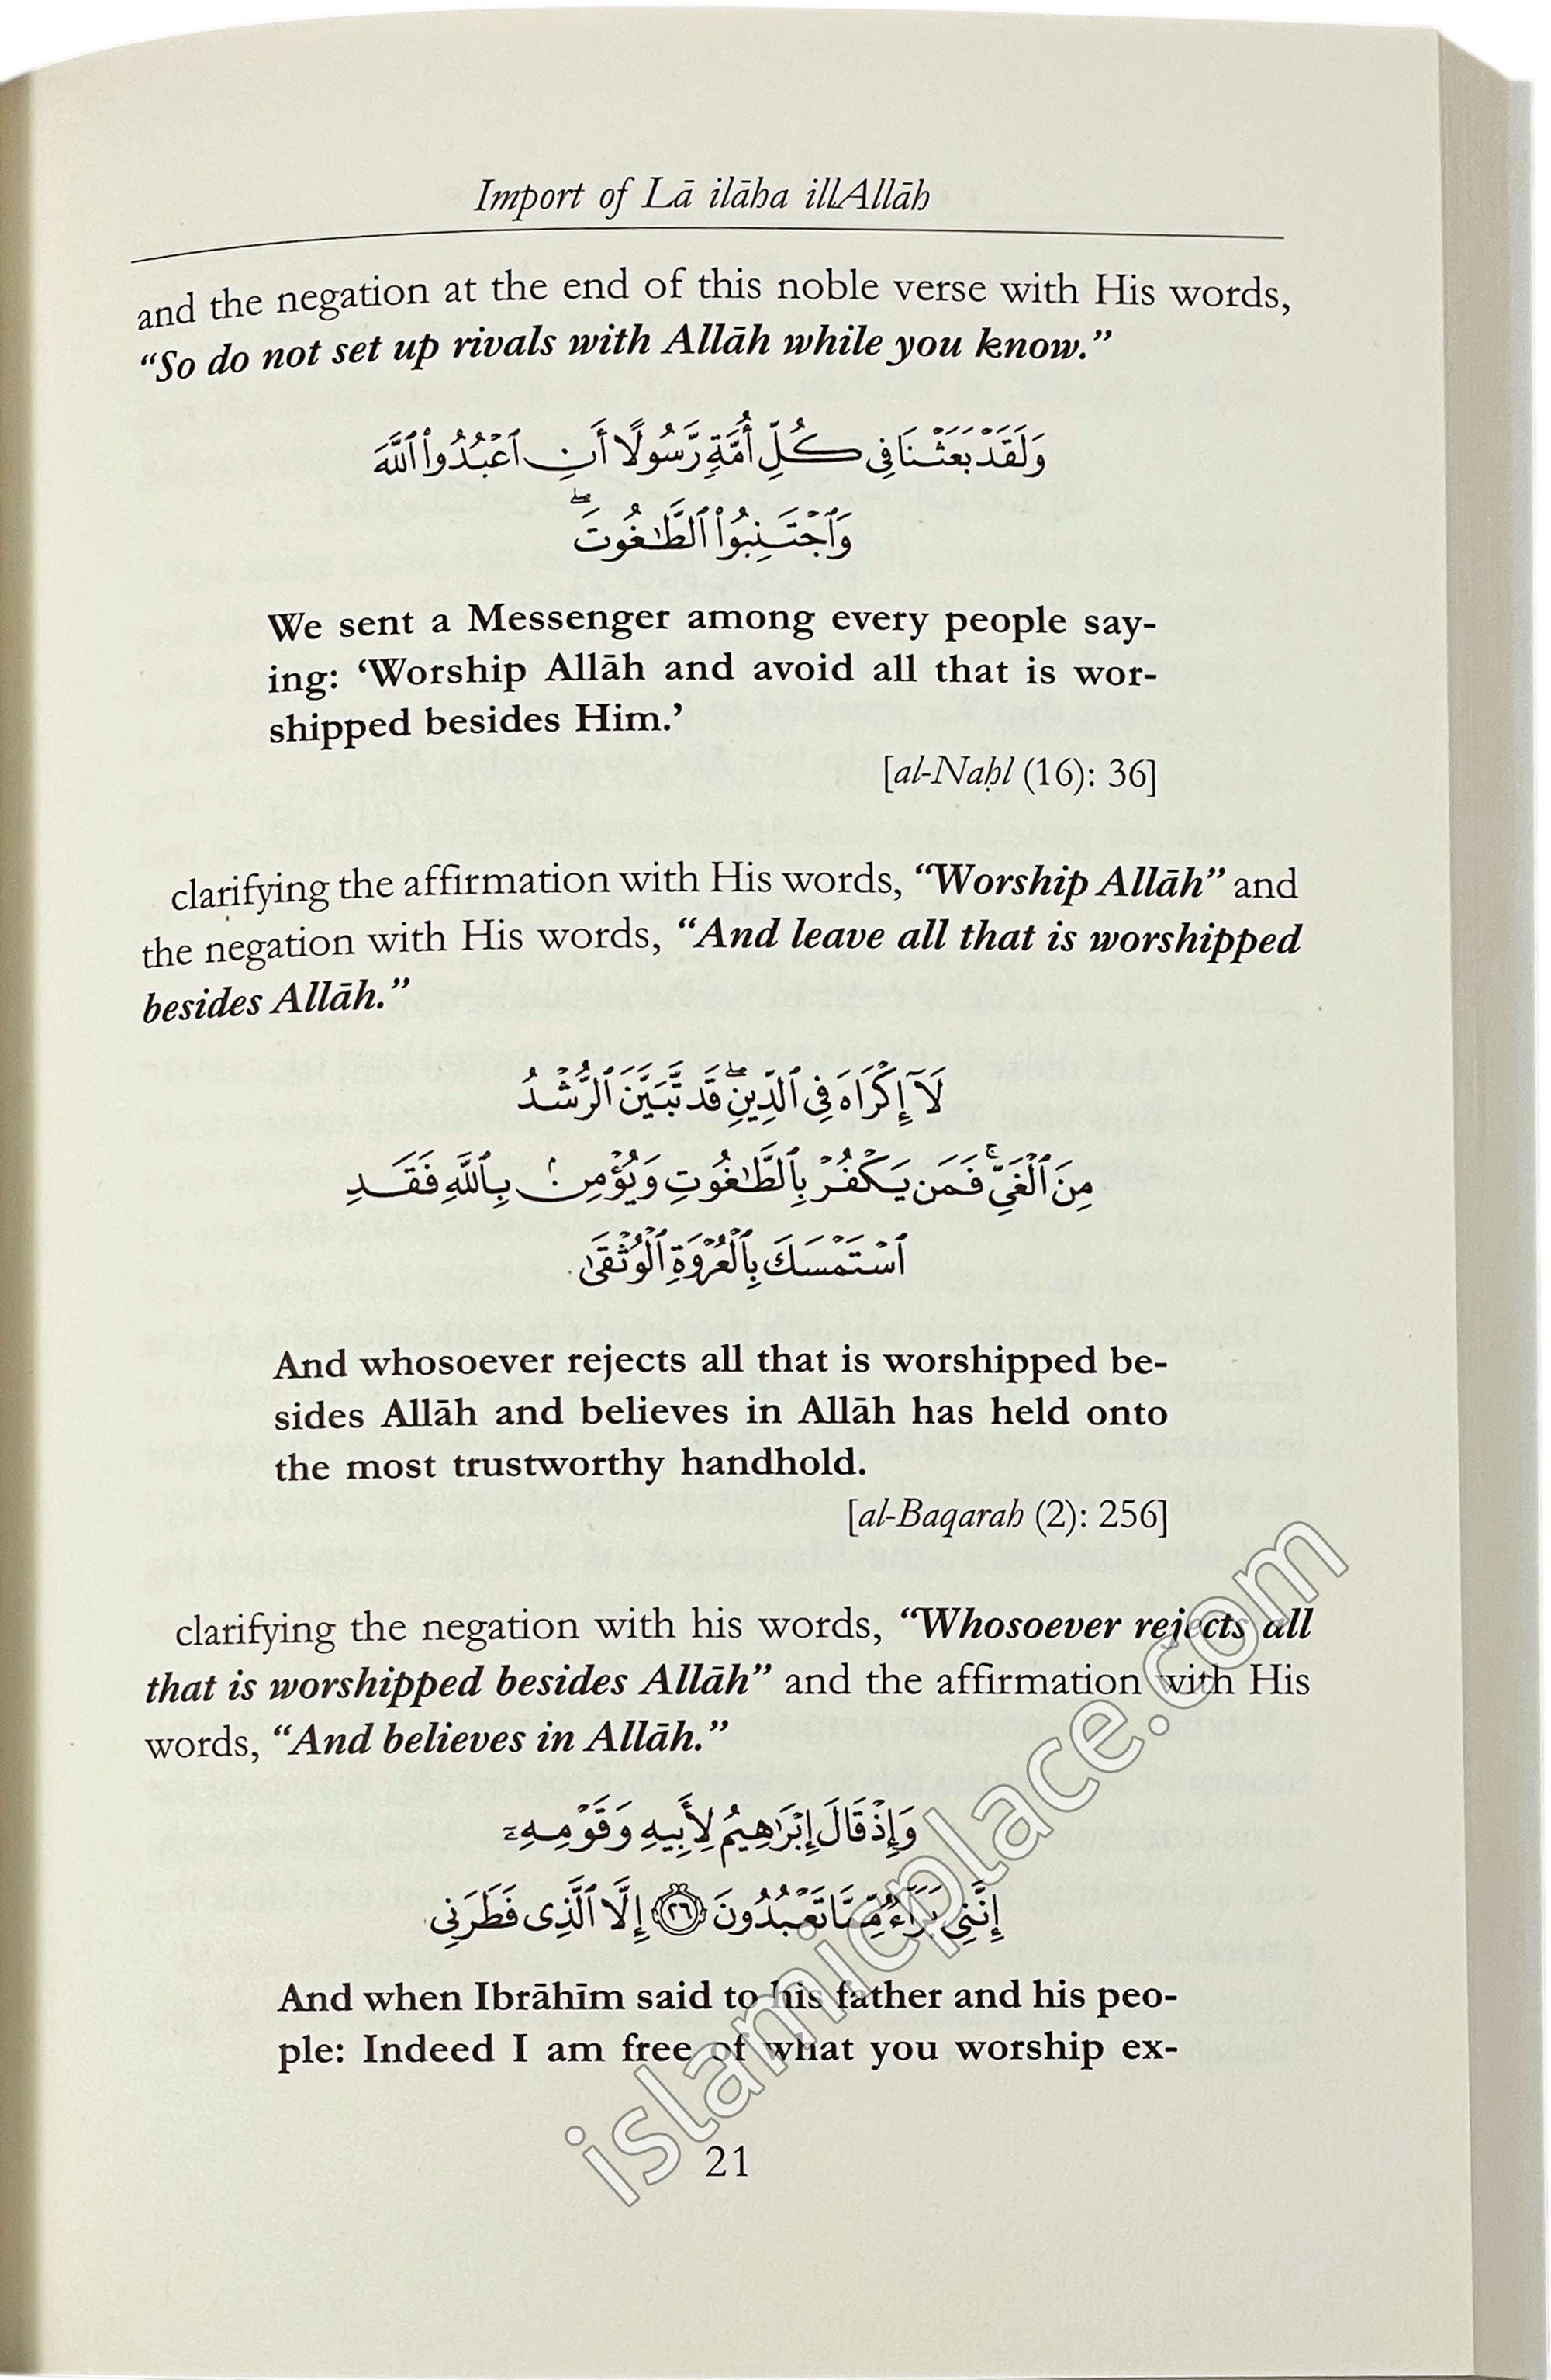 Import of Lā ilāha illAllāh
and the negation at the end of this noble verse with His words,
“So do not set up rivals with Allāh while you know.”
وَلَقَدْ بَعَثْنَا فِي كُلِّ أُمَّةٍ رَّسُولًا أَنِ ٱعْبُدُوا۟ ٱللَّهَ
وَٱجْتَنِبُوا۟ ٱلطَّٰغُوتَ ۖ
We sent a Messenger among every people say-
ing: ‘Worship Allāh and avoid all that is wor-
shipped besides Him.’
[al-Naḥl (16): 36]
clarifying the affirmation with His words, “Worship Allāh” and
the negation with His words, “And leave all that is worshipped
besides Allāh.”
لَآ إِكْرَاهَ فِى ٱلدِّينِ ۖ قَد تَّبَيَّنَ ٱلرُّشْدُ
مِنَ ٱلْغَىِّ ۚ فَمَن يَكْفُرْ بِٱلطَّٰغُوتِ وَيُؤْمِنۢ بِٱللَّهِ فَقَدِ
ٱسْتَمْسَكَ بِٱلْعُرْوَةِ ٱلْوُثْقَىٰ
And whosoever rejects all that is worshipped be-
sides Allāh and believes in Allāh has held onto
the most trustworthy handhold.
[al-Baqarah (2): 256]
clarifying the negation with his words, “Whosoever rejects all
that is worshipped besides Allāh” and the affirmation with His
words, “And believes in Allāh.”
وَإِذْ قَالَ إِبْرَٰهِيمُ لِأَبِيهِ وَقَوْمِهِۦٓ
إِنَّنِى بَرَآءٌ مِّمَّا تَعْبُدُونَ ٢٦ إِلَّا ٱلَّذِى فَطَرَنِى
And when Ibrāhīm said to his father and his peo-
ple: Indeed I am free of what you worship ex-
21
islamicplace.com